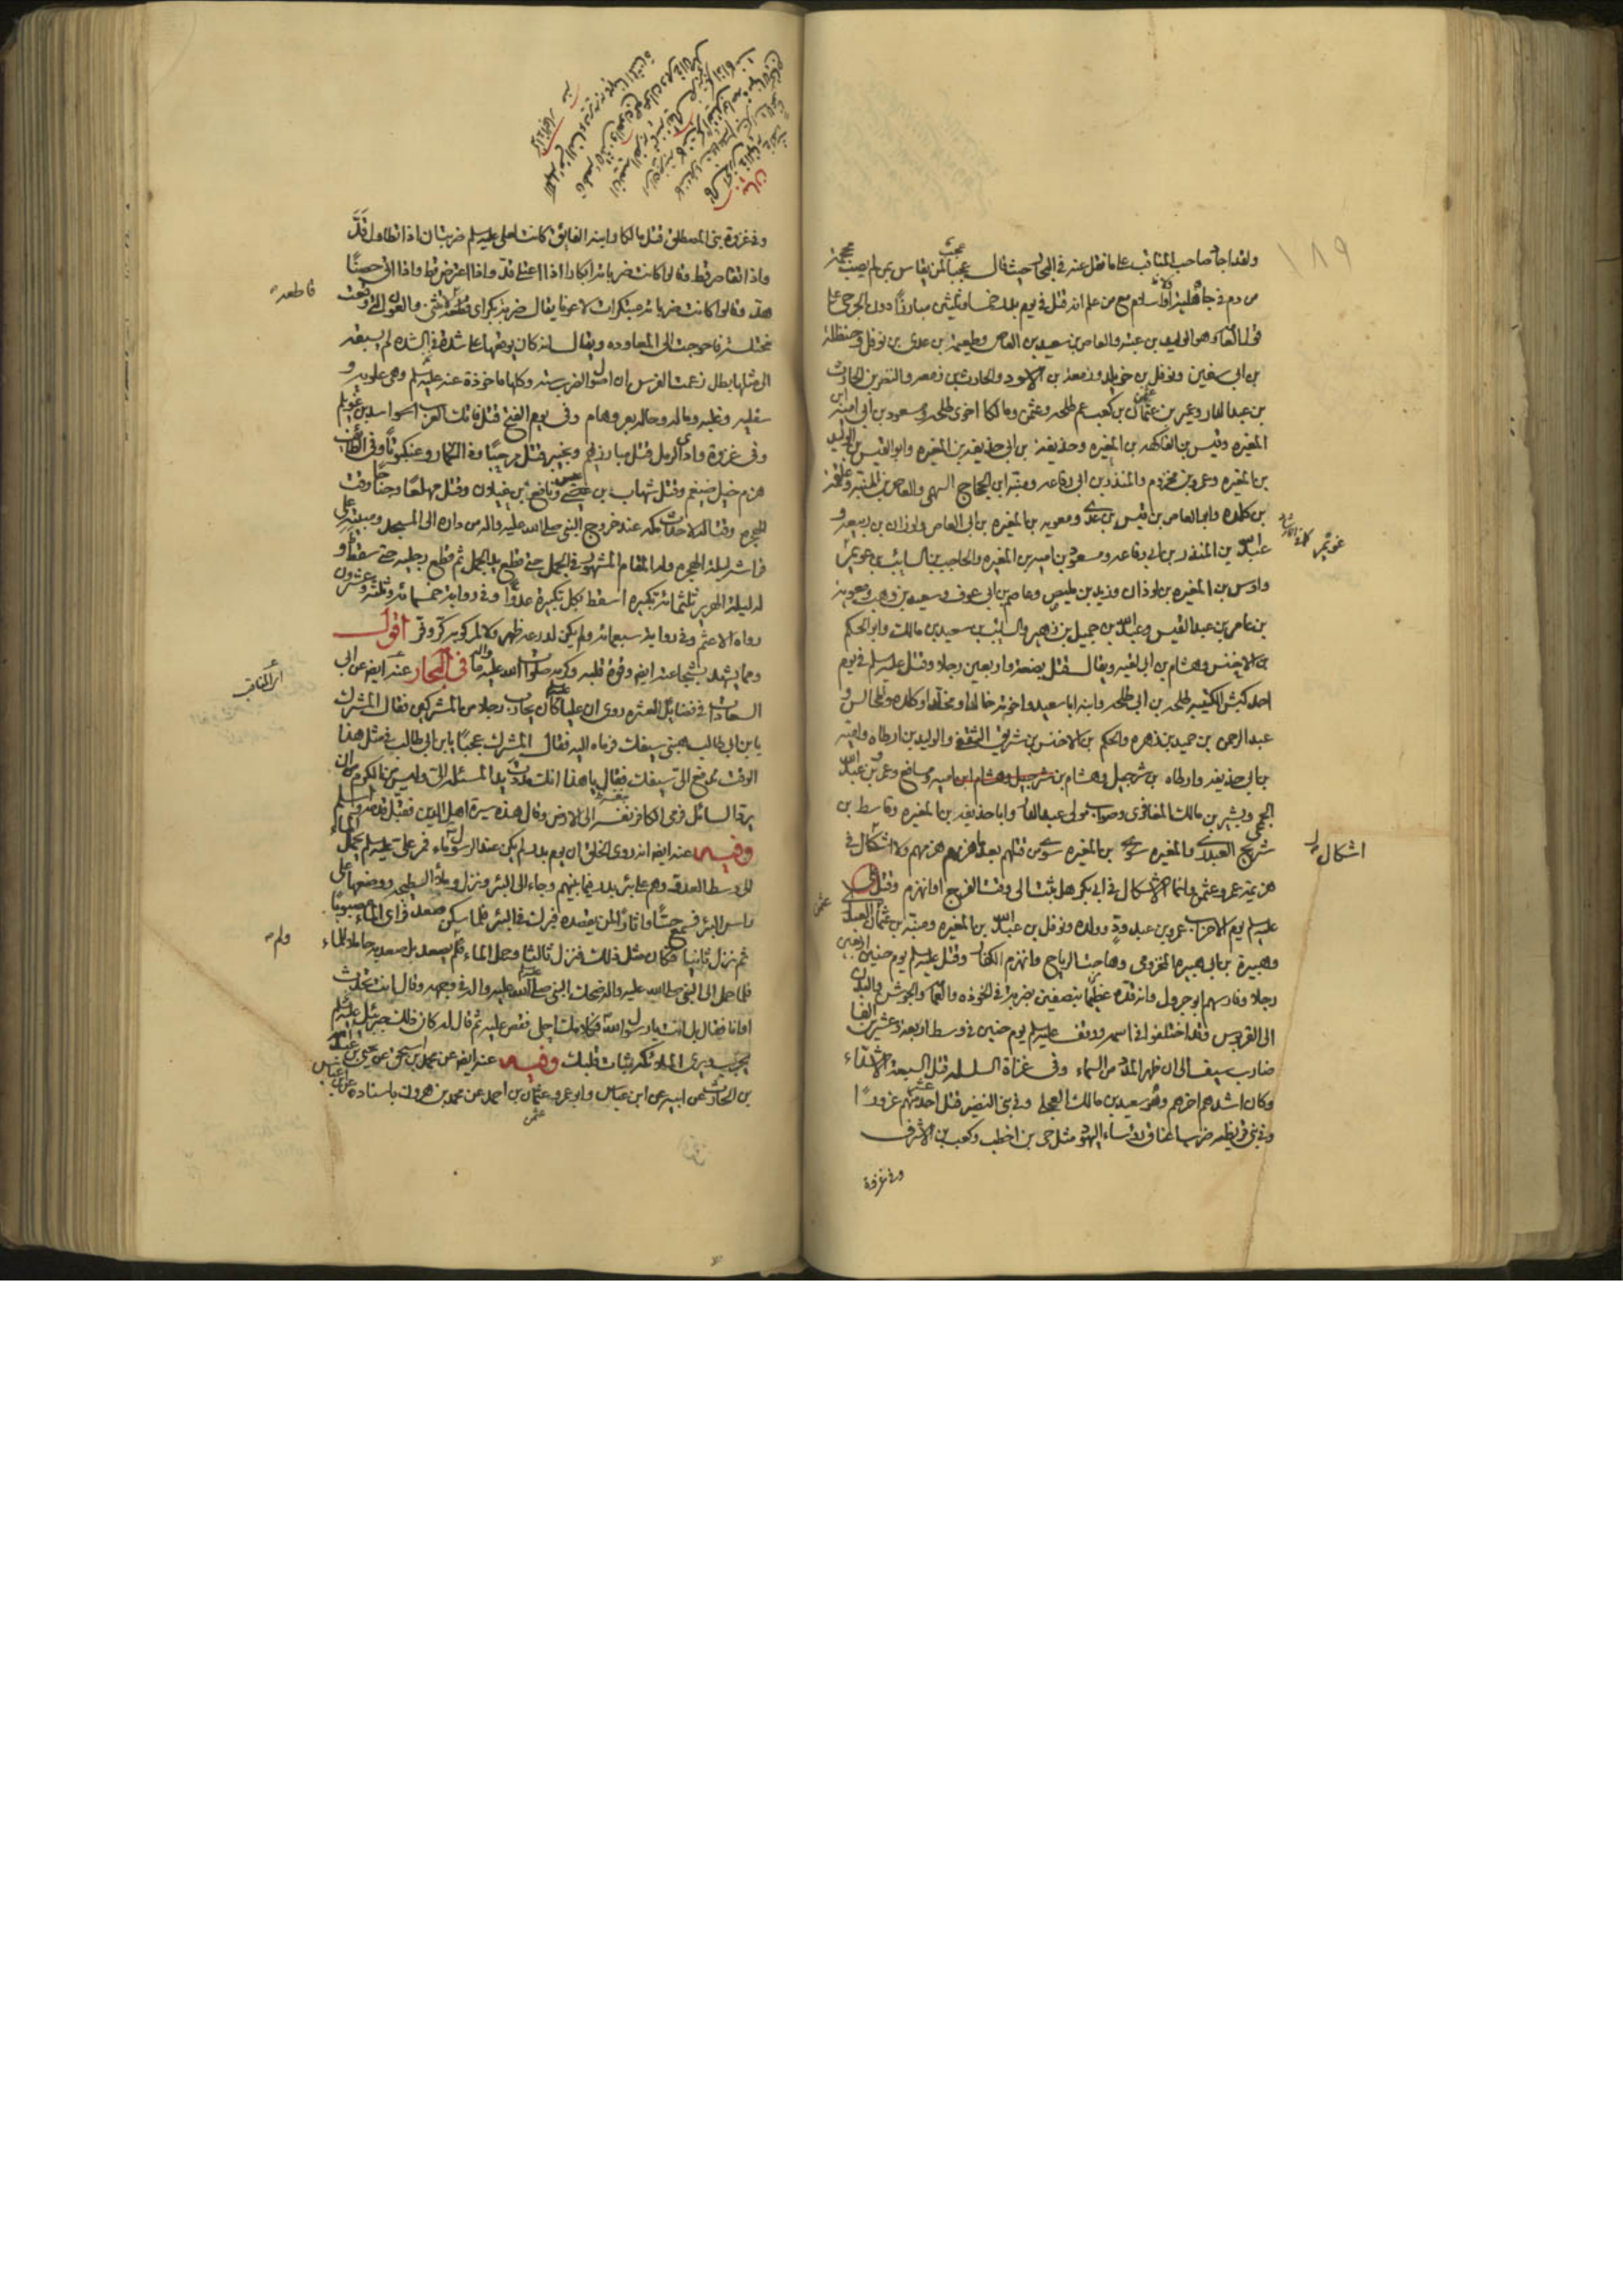 ولقد اجاد صاحب المناقب على ما نقل عنه في البحار حيث قال عجبا لمن يقاس بمن لم يصب محجمة
من دم في جاهلية او اسلام مع من علم انه قتل في يوم بدر خمسا وثلثين مبارزا دون الجرحى على
قول العامة وهو الوليد بن عتبه والعاص بن سعيد بن العاص وطعيمة بن عدى بن نوفل وحنظلة
بن ابى سفين ونوفل بن خويلد وزمعة بن الاسود والحارث بن زمعه والنضر بن الحارث
بن عبد الدار وعمير بن عثمان بن كعب عم طلحه وعثمن ومالكا اخوى طلحه ومسعود بن ابى امية بن
المغيره وقيس بن الفاكهه بن المغيره وحذيفة بن ابى حذيفه بن المغيره وابو القيس بن الوليد
بن المغيره وعمرو بن مخزوم والمنذر بن ابى رفاعه ومنبه ابن الحجاج السهمى والعاص بن منبه وعلقمة
بن كلده وابو العاص بن قيس بن عدى ومعويه بن المغيره بن ابى العاص ولوذان بن ربيعه و
عبد الله بن المنذر بن ابى رفاعه ومسعود بن اميه بن المغيره والحاجب بن السائب بن عويمر
واوس بن المغيره بن لوذان وزيد بن مليص وعاصم بن ابى عوف وسعيد بن وهب ومعويه
بن عامر بن عبد القيس وعبد الله بن جميل بن زهير والسائب بن سعيد بن مالك وابو الحكم
بن الاخنس وهشام بن ابى اميه ويقال قتل بضعة واربعين رجلا وقتل عليه السلم في يوم
احد كبش الكتيبه طلحه بن ابى طلحه وابنه ابا سعيد واخوته خالدا ومخلدا وكلده والمحالس و
عبد الرحمن بن حميد بن زهره والحكم بن الاخنس بن شريق الثقفى والوليد بن ارطاه واميه
بن ابى حذيفه وارطاه بن شرحبيل وهشام بن اميه ومسافع وعمرو بن عبد الله
الجمحى وبشر بن مالك المغافرى وصواب مولى عبد الدار وابا حذيفه بن المغيره وقاسط بن
شريح العبدى والمغيره بن المغيره سوى من قتلهم بعد ما هزمهم ولا اشكال في
هزيمة عمر وعثمن وانما الاشكال في ابى بكر هل ثبت الى وقت الفرج او انهزم وقتل
عليه السلم يوم الاحزاب عمرو بن عبد ود وولده ونوفل بن عبد الله بن المغيره ومنبه بن عثمان العبدى
وهبيرة بن ابى هبيره المخزومى وهاجت الرياح وانهزم الكفار وقتل عليه السلم يوم حنين اربعين
رجلا وفارسهم ابو جرول وانه قده عظيما بنصفين بضربة في الخوذه والعمامة والجوشن والبدن
الى القربوس وقد اختلفوا في اسمه ووقف عليه السلم يوم حنين في وسط اربعة وعشرين الفا
ضارب سيف الى ان ظهر المدد من السماء وفى غزاة السلسله قتل السبعة الاشداء
وكان اشدهم اخرهم وهو سعيد بن مالك العجلى وفى بنى النضير قتل احد عشر منهم غرورا
وفى بنى قريظه ضرب اعناق رؤساء اليهود مثل حى بن اخطب وكعب بن الاشرف
وفى غزوة
اشكال
وفى غزوة بنى المصطلق قتل مالكا وابنه الفايق كانت لعلى عليه السلم ضربتان اذا تطاول قد
واذا تقاصر قط وقالوا كانت ضرباته ابكارا اذا اعتلى قد واذا اعترض قط واذا اتى حصنا
هد وقالوا كانت ضرباته مبتكرات لا عونا يقال ضربة بكر اى قاطعة لا تثنى والعون التى وقعت
مختلسة فاحوجت الى المعاوده ويقال انه كان يوقعها على شدة في الشده لم يسبقه
الى مثلها بطل زعمت الفرس ان اصول الضرب سته وكلها ماخوذة عنه عليه السلم وهى علويه و
سفليه وغلبه وماله وحاله وهام وفى يوم الفتح قتل فاتك العرب اسد بن غويلم
وفى غزوة وادى الرمل قتل مبارزيهم وبخيبر قتل مرحبا وذا الخمار وعنكبوتا وفى الطائف
هزم خيل ضيغم وقتل شهاب بن عيس ونافع بن غيلان وقتل مهلعا وجناحا وقت
الهجره وقتاله لاحداث مكه عند خروج النبى صلى الله عليه واله من داره الى المسجد ومبيته على
فراشه ليلة الهجره وله المقام المشهور في الجمل حتى قطع يد الجمل ثم قطع رجليه حتى سقط و
له ليلة الهرير ثلثمائة تكبيره اسقط بكل تكبيرة عدوا وفى رواية خمسمائة وثلثة وعشرون
رواه الاعثم وفى رواية سبعمائة ولم يكن لدرعه ظهر ولا لمركوبه كر وفر اقول
ومما يشهد بشجاعته ايضا وقوة قلبه وكرمه صلوات الله عليه واله ما في البحار عنه ايضا عن ابى
السعادات في فضايل العشره روى ان عليا كان يحارب رجلا من المشركين فقال المشرك
يا بن ابى طالب هبنى سيفك فرماه اليه فقال المشرك عجبا يا بن ابى طالب في مثل هذا
الوقت تدفع الى سيفك فقال يا هذا انك مددت يد المسئله الى وليس من الكرم ان
يرد السائل فرمى الكافر نفسه الى الارض وقال هذه سيرة اهل الدين فقبل قدمه واسلم
وفيه عنه ايضا انه روى الخلق ان يوم بدر لم يكن عند الرسول ماء فمر على عليه السلم يحمل الماء
الى وسط العدو وهم على بئر بدر فيما بينهم وجاء الى البئر ونزل وملأ السطيحه ووضعها على
راس البئر فسمع حسا واثار لمن يقصده فبرك في البئر فلما سكن صعد فراى الماء مصبوبا
ثم نزل ثانيا فكان مثل ذلك فنزل ثالثا وحمل الماء فلم يصعد بل صعد به حاملا للماء
فلما حمل الى النبى صلى الله عليه واله ضحك النبى صلى الله عليه واله في وجهه وقال انت تحدث
او انا فقال بل انت يا رسول الله فكلامك احلى فقص عليه ثم قال له كان ذلك جبرئيل عليه السلم
يجرب ويرى الملائكه ثبات قلبك وفيه عنه ايضا عن محمد بن اسحق عن يحيى بن عبد الله
بن الحارث عن ابيه عن ابن عباس وابو عمرو عثمان بن احمد عن محمد بن هرون باسناده عن ابن عباس
قاطعة
اى المناقب
ولم